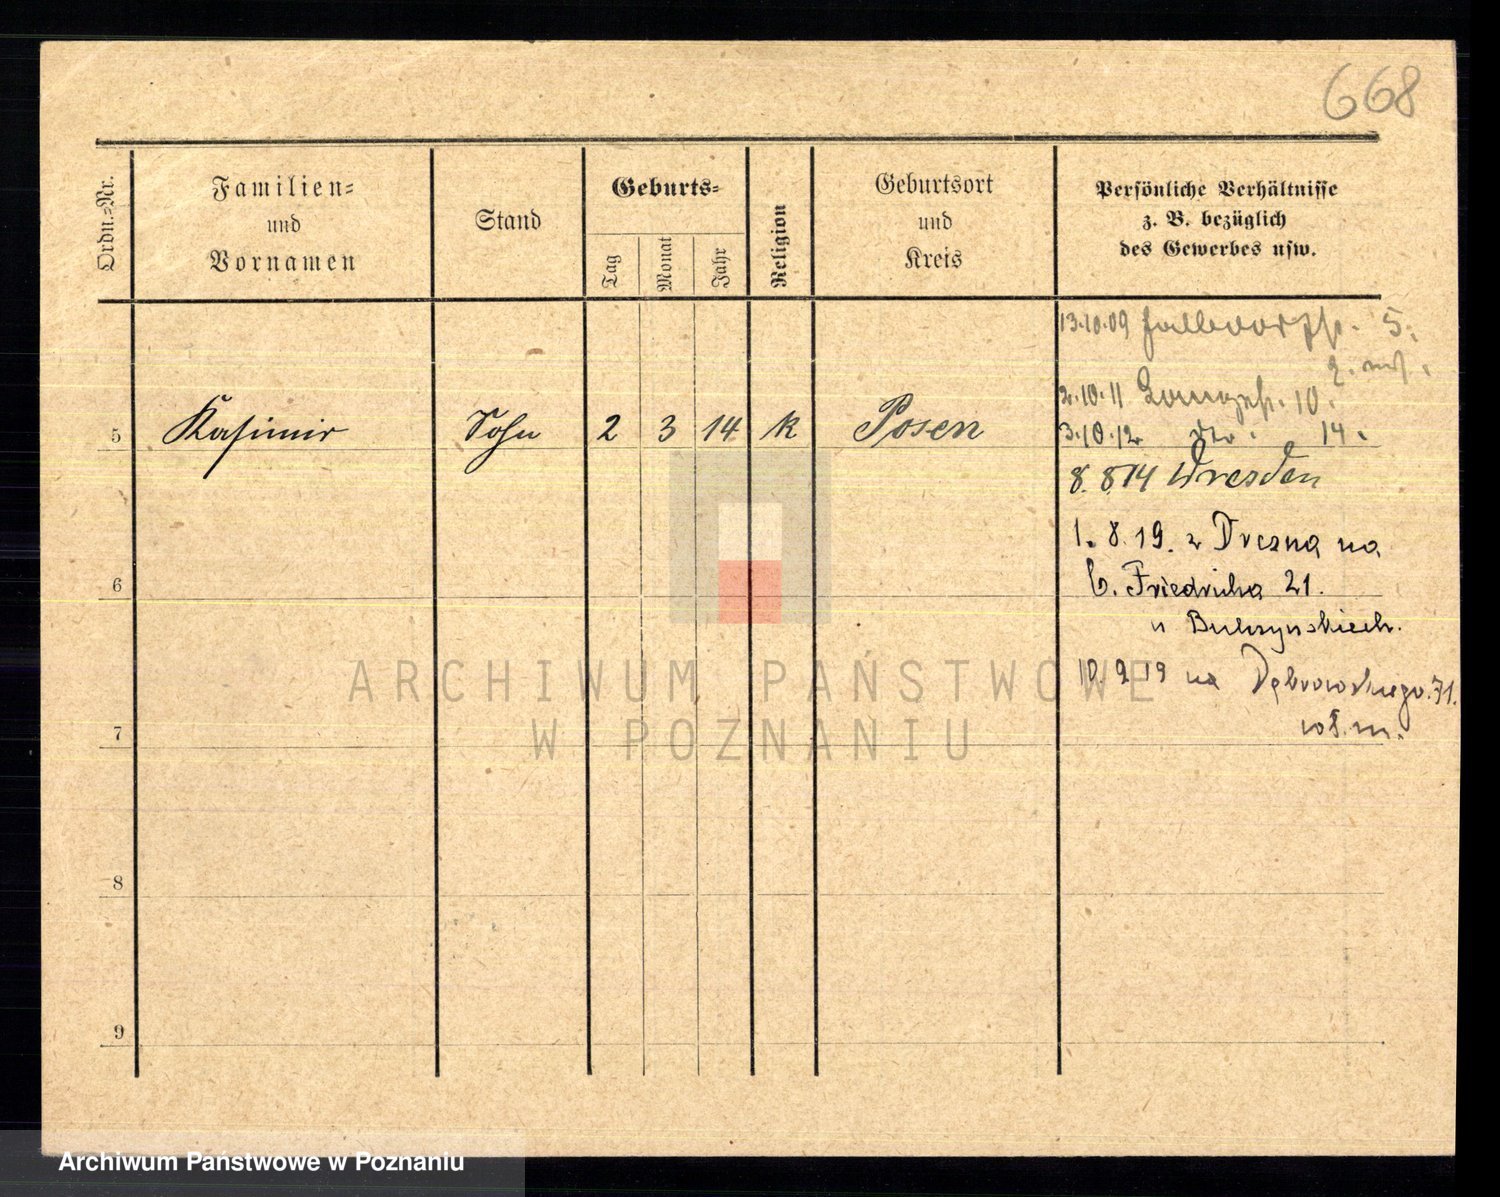 668
Ordn.-Nr.
Familien-
und
Vornamen
Stand
Geburts-
Tag
Monat
Jahr
Religion
Geburtsort
und
Kreis
Persönliche Verhältnisse
z. B. bezüglich
des Gewerbes usw.
13.10.09 5.
2.10.11 10.
3.10.12 14.
5 Kasimir Sohn 2 3 14 k Posen
8. 8 14 Dresden
1. 8. 19. z Drezna na
6
C. Friedricha 21.
u
10. 9 19 na Dąbrowskiego. 71.
7
8
9
ARCHIWUM PAŃSTWOWE
W POZNANIU
Archiwum Państwowe w Poznaniu